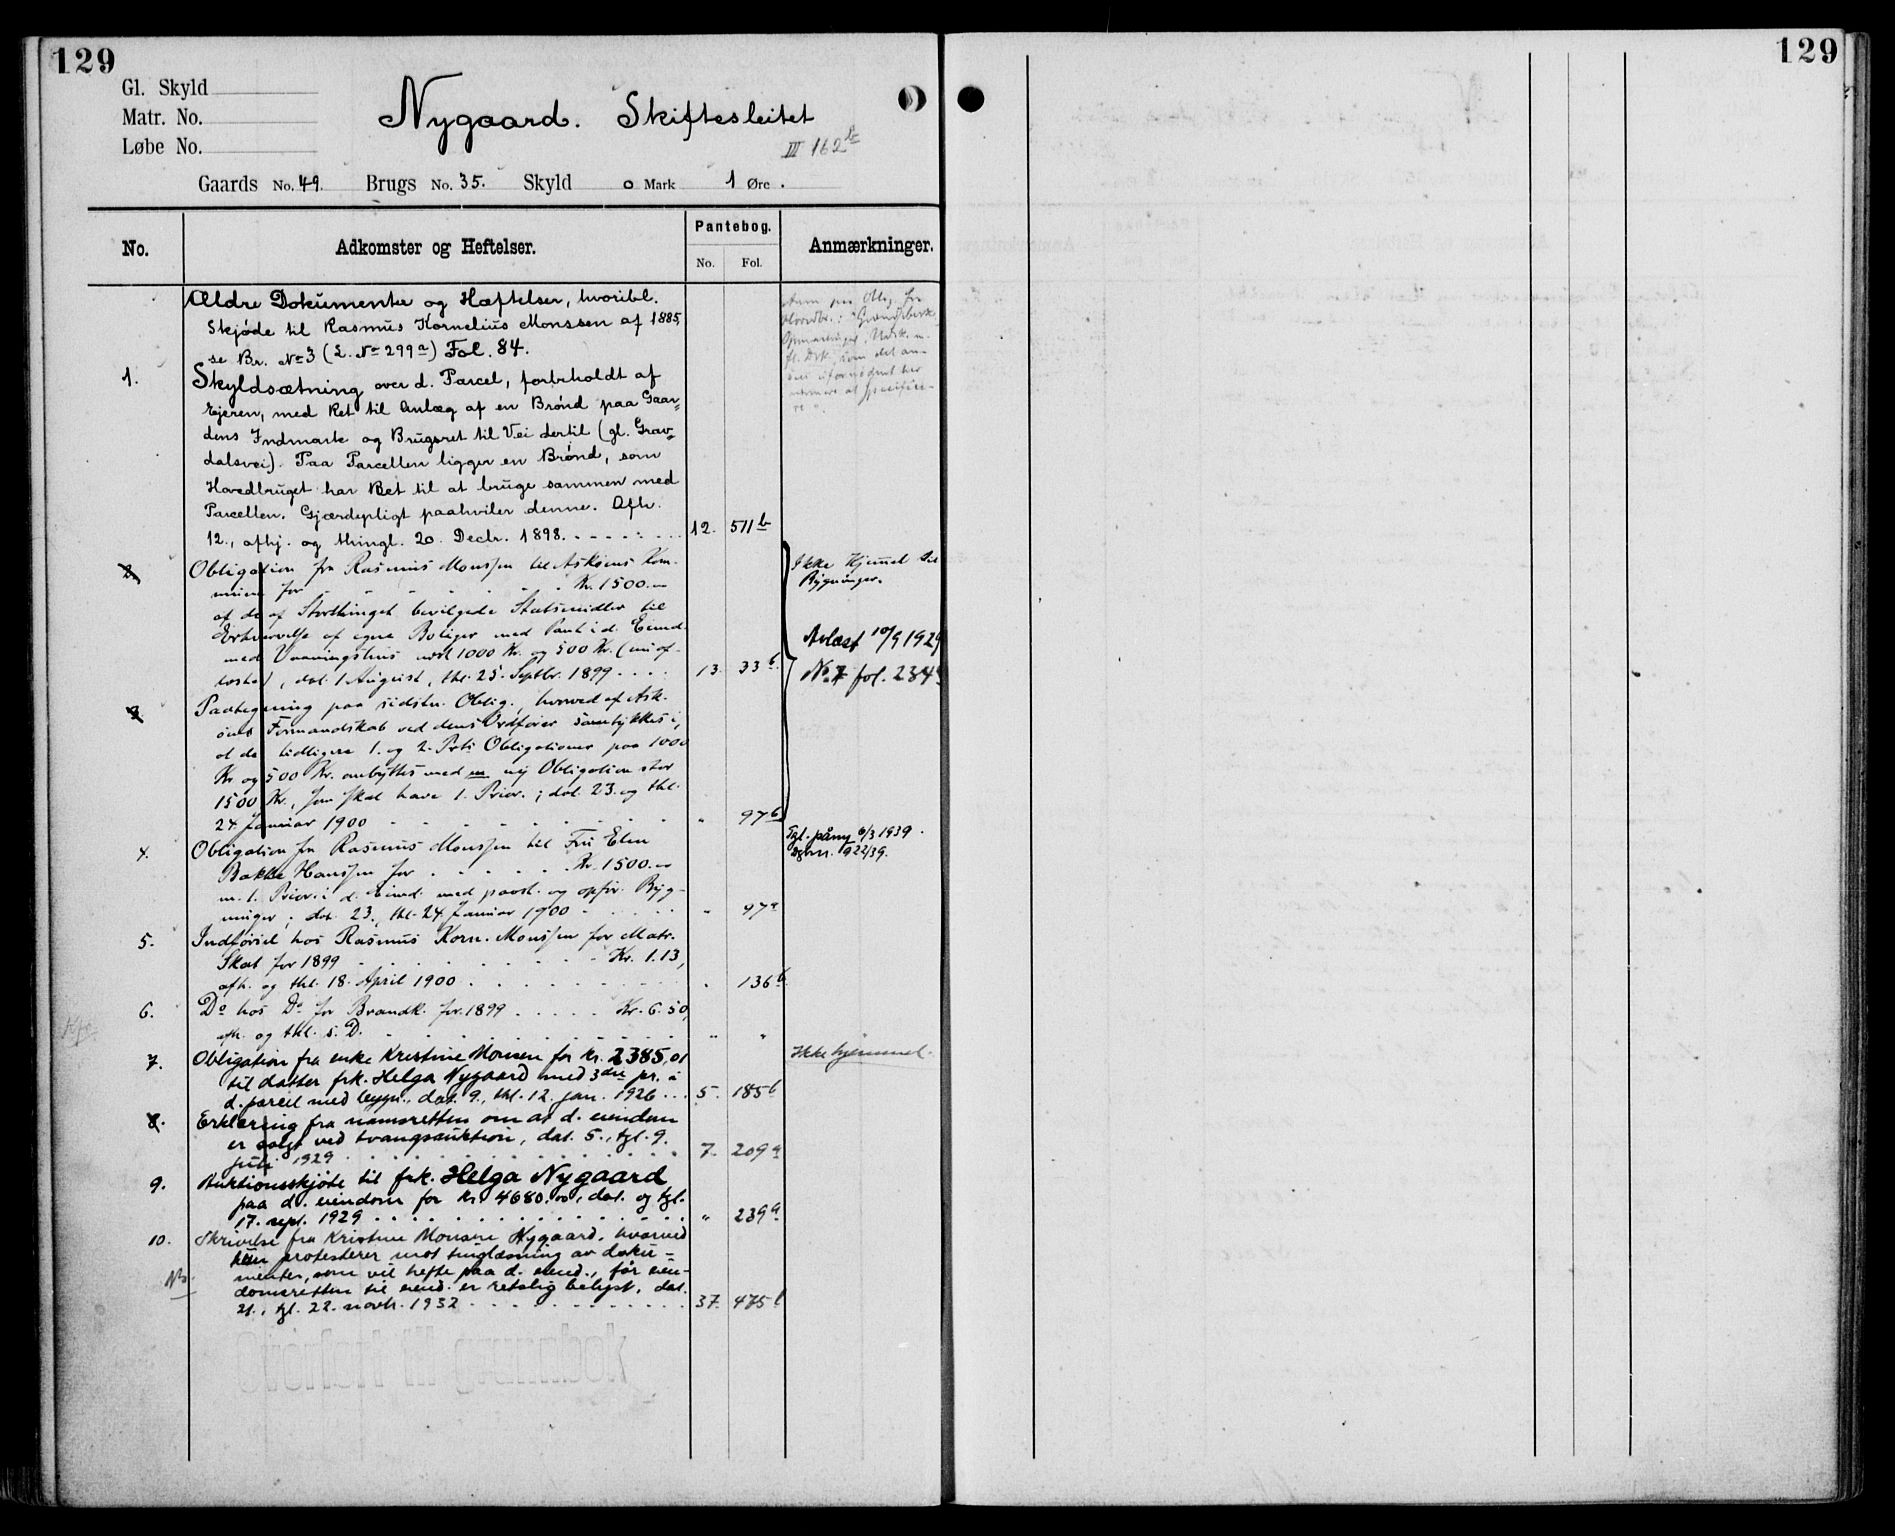 129
129
Gl. Skyld
Matr. No.
Løbe No.
Nygaard. Skiftesleitet
III 162b
Gaards No. 49. Brugs No. 35. Skyld 0 Mark 1 Øre.
No.
Adkomster og Heftelser.
Pantebog.
No. Fol.
Anmærkninger.
Ældre Dokumenter og Hæftelser, hvoribl.
Skjøde til Rasmus Kornelius Monssen af 1885,
se Br. No 3 (L. No 299a) Fol. 84.
1. Skyldsætning over d. Parcel, forbeholdt af
Ejeren, med Ret til Anlæg af en Brønd paa Gaar-
dens Indmark og Brugsret til Vei dertil (gl. Grav-
dalsvei). Paa Parcellen ligger en Brønd, som
Hovedbruget har Ret til at bruge sammen med
Parcellen. Gjærdepligt paahviler denne. Afh.
12., afhj. og thingl. 20. Decbr. 1898. 12. 511b
2. Obligation fra Rasmus Monssen til Askøens Kom-
mune for Kr. 1500.
af de af Storthinget bevilgede Statsmidler til
Erhvervelse af egne Boliger med Pant i d. Eiend.
med Vaaningshus 1000 Kr. og 500 Kr.
, dat. 1 August, thl. 25. Septbr. 1899 13. 33b
Ikke Hjemmel til
Bygninger.
Avlæst 10/9 1929
No. 7 fol. 234
3. Paategning paa sidstn. Oblig., hvorved af Ask-
øens Formandskab ved dens Ordfører samtykkes i,
at de tidligere 1. og 2. Prts Obligationer paa 1000
Kr. og 500 Kr. ombyttes med en ny Obligation stor
1500 Kr., som skal have 1. Prior.; dat. 23. og thl.
24 Januar 1900 " 97b
4. Obligation fra Rasmus Monssen til Fru Elen
Bakke Hanssen for Kr. 1500.
m. 1. Prior. i d. Eiend. med paast. og opfør. Byg-
ninger; dat. 23., thl. 24 Januar 1900 " 97a
Tgl. påny 6/3 1939.
Dgbnr. 922/39.
5. Indførsel hos Rasmus Korn. Monssen for Matr.
Skat for 1899 Kr. 1.13,
afh. og thl. 18. April 1900 " 136b
6. Do hos Do for Brandk. for 1899 Kr. 6.50,
afh. og thl. s. D. " "
7. Obligation fra enke Kristine Monsen for kr. 2385,01
til datter frk. Helga Nygaard med 3die pr. i
d. parcel med bygn., dat. 9., thl. 12. jan. 1926 5. 185b
Ikke hjemmel.
8. Erklæring fra namsretten om at d. eiendom
er solgt ved tvangsauktion, dat. 5., tgl. 9.
juli 1929 7. 209a
9. Auktionsskjøte til frk. Helga Nygaard
paa d. eiendom for kr. 4680.00, dat. og tgl.
17. sept. 1929 " 239a
10. Skrivelse fra Kristine Monsen Nygaard, hvorved
hun protesterer mot tinglæsning av doku-
menter, som vil hefte paa d. eiend., før eien-
domsretten til eiend. er retslig belyst, dat.
21., tgl. 22. novbr. 1932 37. 475b
Overført til grunnbok